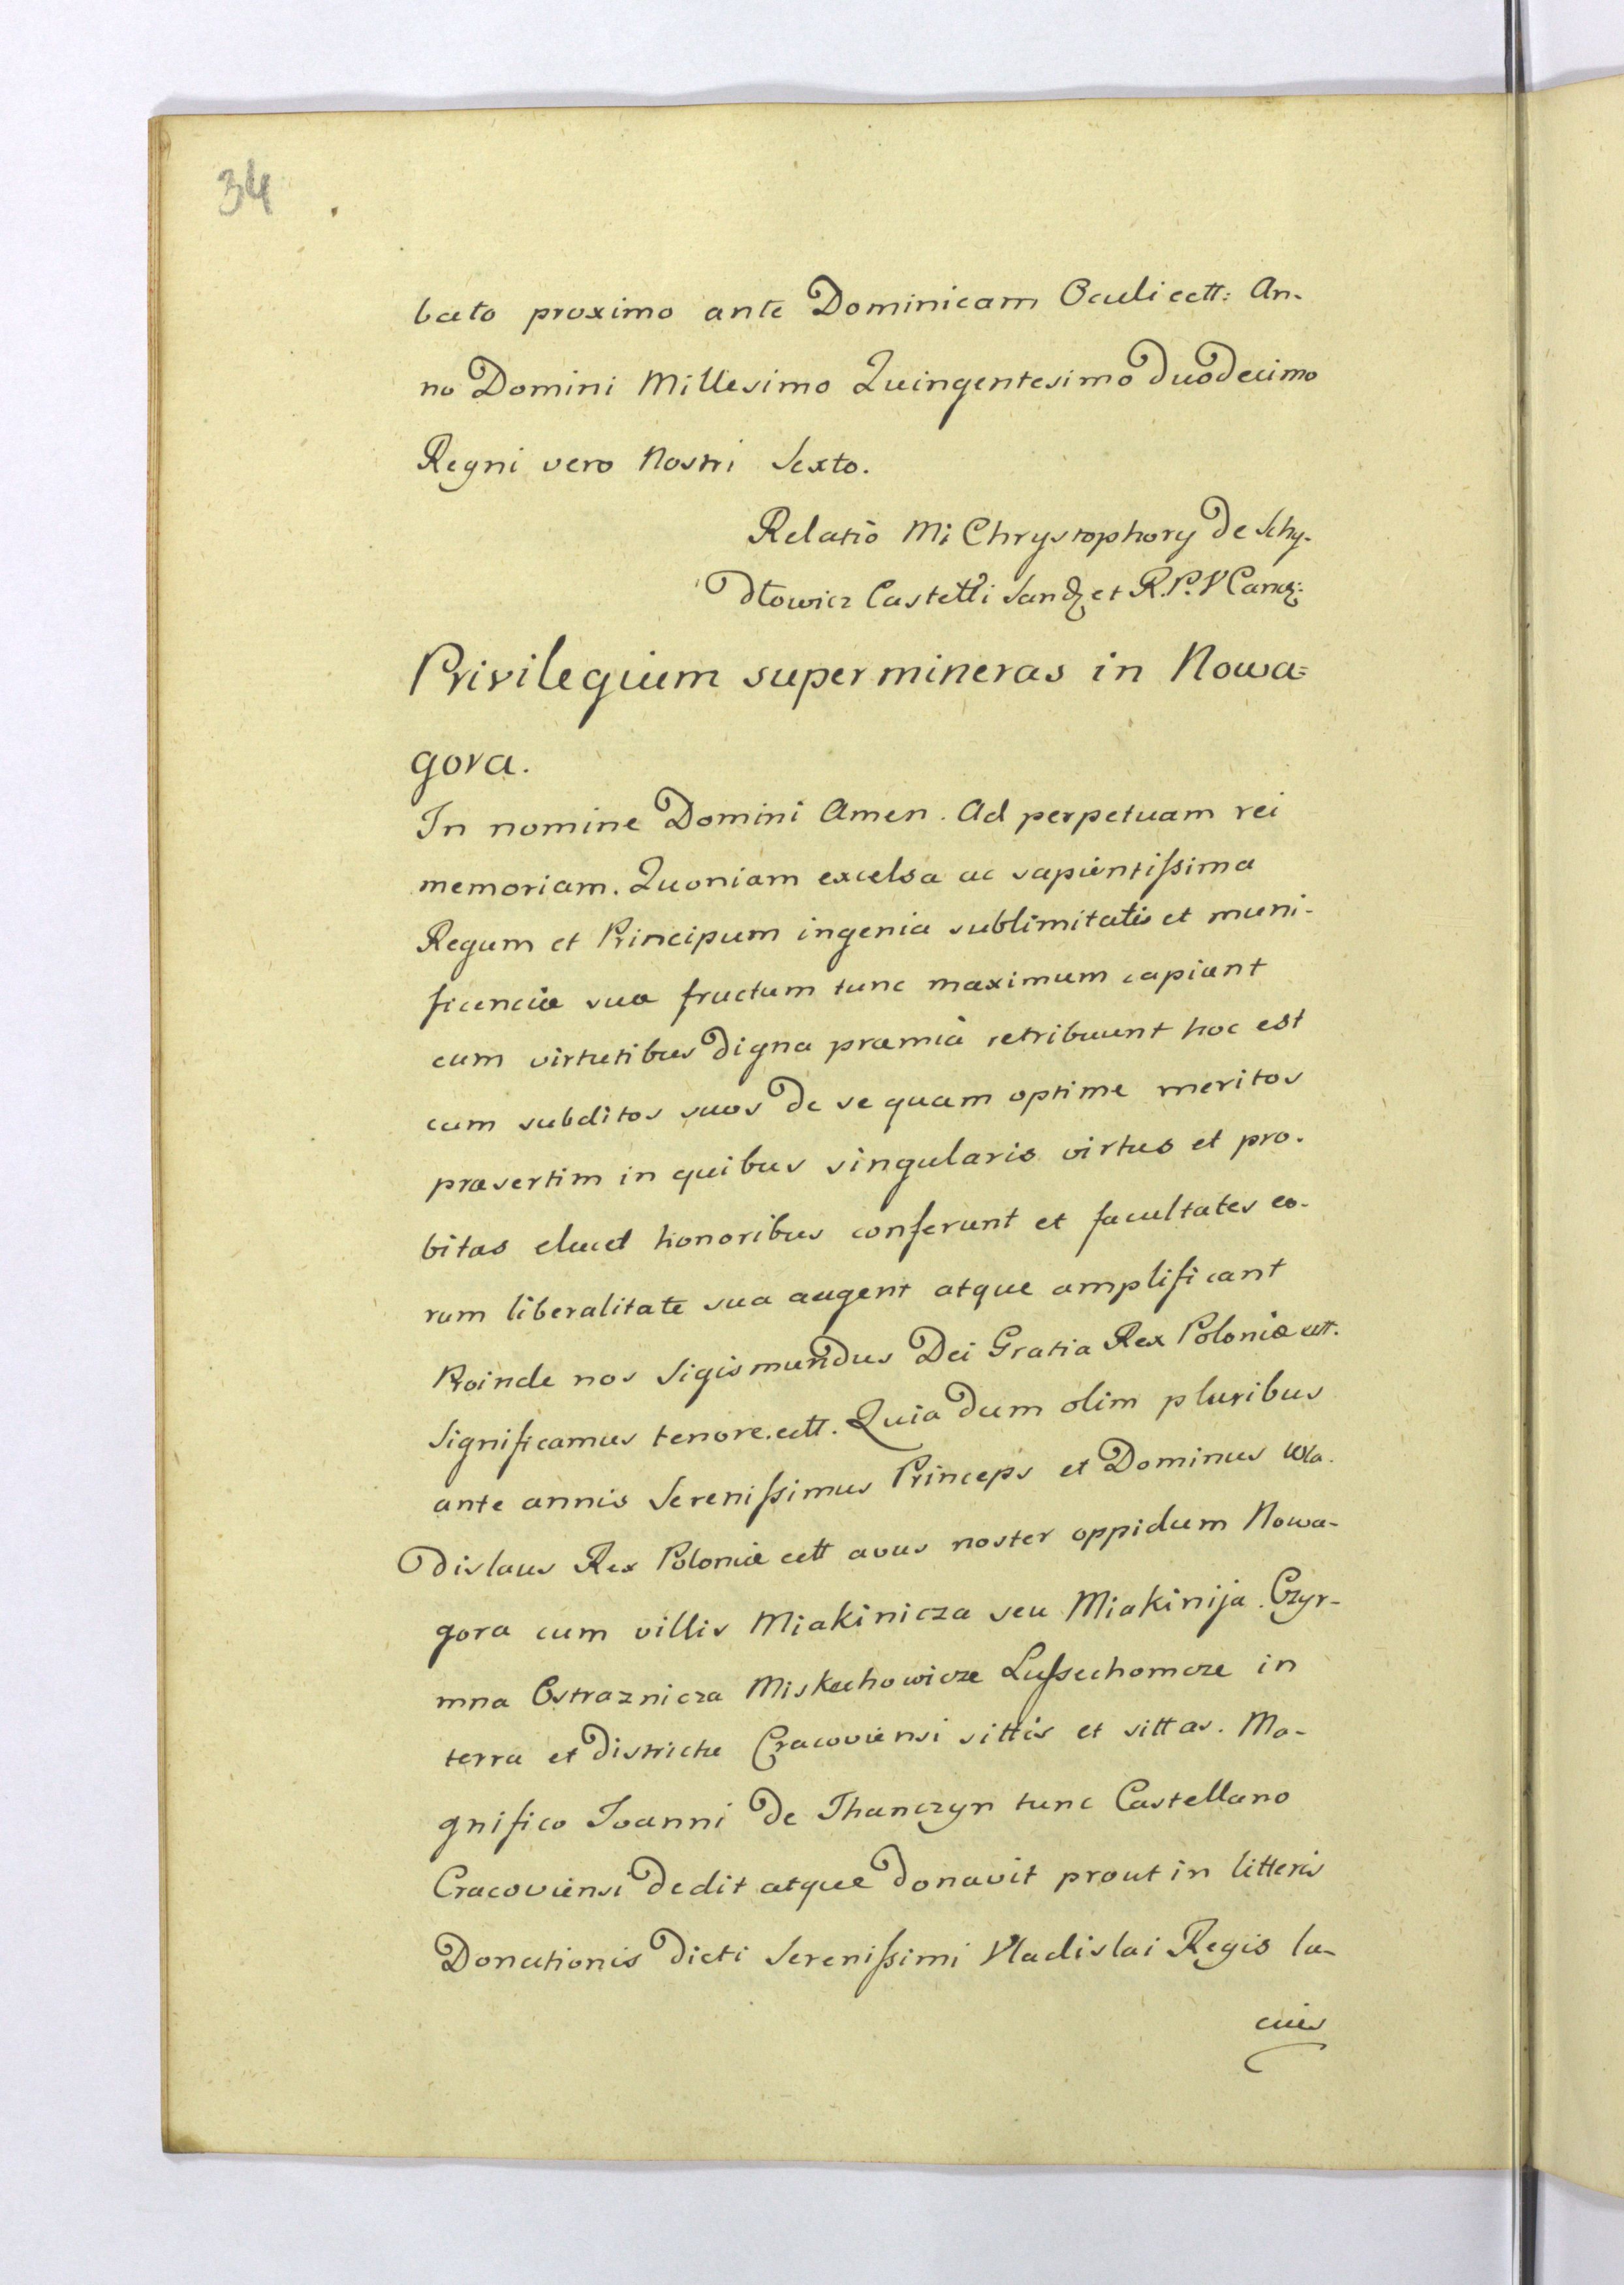 34
bato proximo ante Dominicam Oculi cett: An-
no Domini Millesimo Quingentesimo duodecimo
Regni vero Nostri Sexto.
Relatio Mi Chrystophory de Schy-
dłowicz Castelli Sandz et R. P. V Canc:
Privilegium super mineras in Nowa=
gora.
In nomine Domini Amen. Ad perpetuam rei
memoriam. Quoniam excelsa ac sapientißima
Regum et Principum ingenia sublimitatis et muni-
ficenciæ suæ fructum tunc maximum capiunt
cum virtutibus digna præmia retribuunt hoc est
cum subditos suos de se quam optime meritos
præsertim in quibus singularis virtus et pro-
bitas elucet honoribus conferunt et facultates eo-
rum liberalitate sua augent atque amplificant
Proinde nos Sigismundus Dei Gratia Rex Poloniæ cett.
Significamus tenore. cett. Quia dum olim pluribus
ante annis Serenißimus Princeps et Dominus Wla-
dislaus Rex Poloniæ cett avus noster oppidum Nowa-
gora cum villis Miakinicza seu Miakinija. Czyr-
mna Ostraznicza Miskuchowicze Lußuchomcze in
terra et districtu Cracoviensi sittis et sittas. Ma-
gnifico Joanni de Thanczyn tunc Castellano
Cracoviensi dedit atque donavit prout in litteris
Donationis dicti Serenißimi Vladislai Regis la-
cius